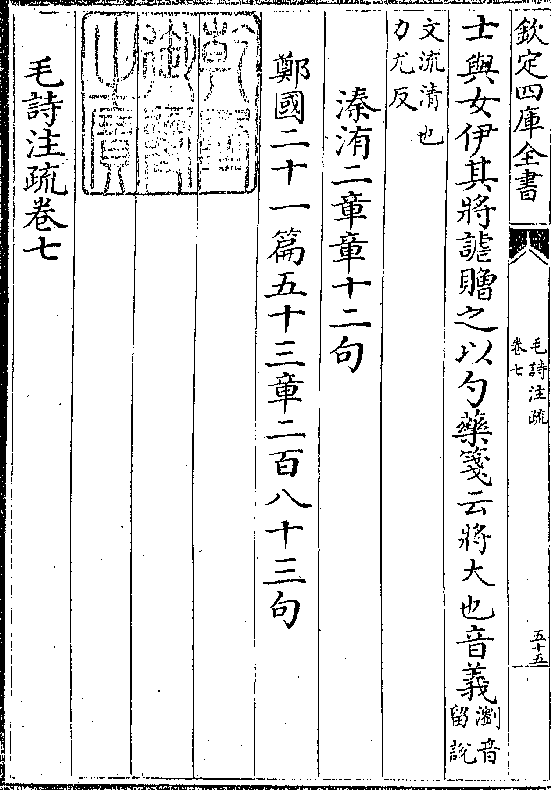 欽定四庫全書
毛詩注疏
卷七
五十五
士與女伊其將謔贈之以勺藥箋云將大也音義瀏音留說
文流清也力尤反
溱洧二章章十二句
鄭國二十一篇五十三章二百八十三句
乾隆御覽之寶
毛詩注疏卷七